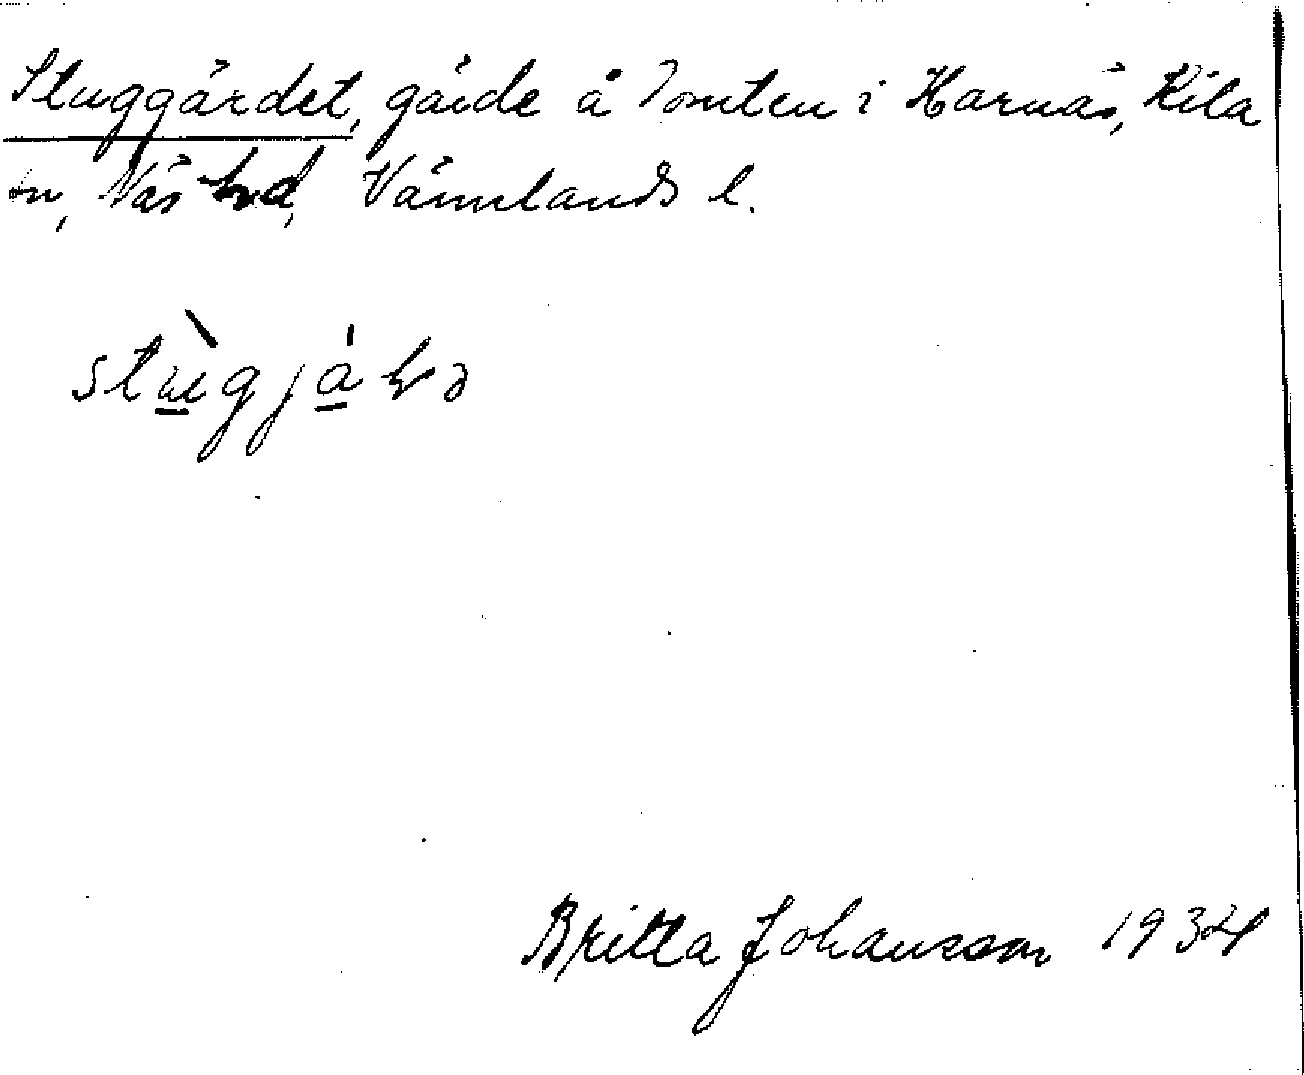 Stuggärdet, gärde å Tomten i Harnäs, Kila
sn, Näs hd, Värmlands l.
Britta Johansson 1934